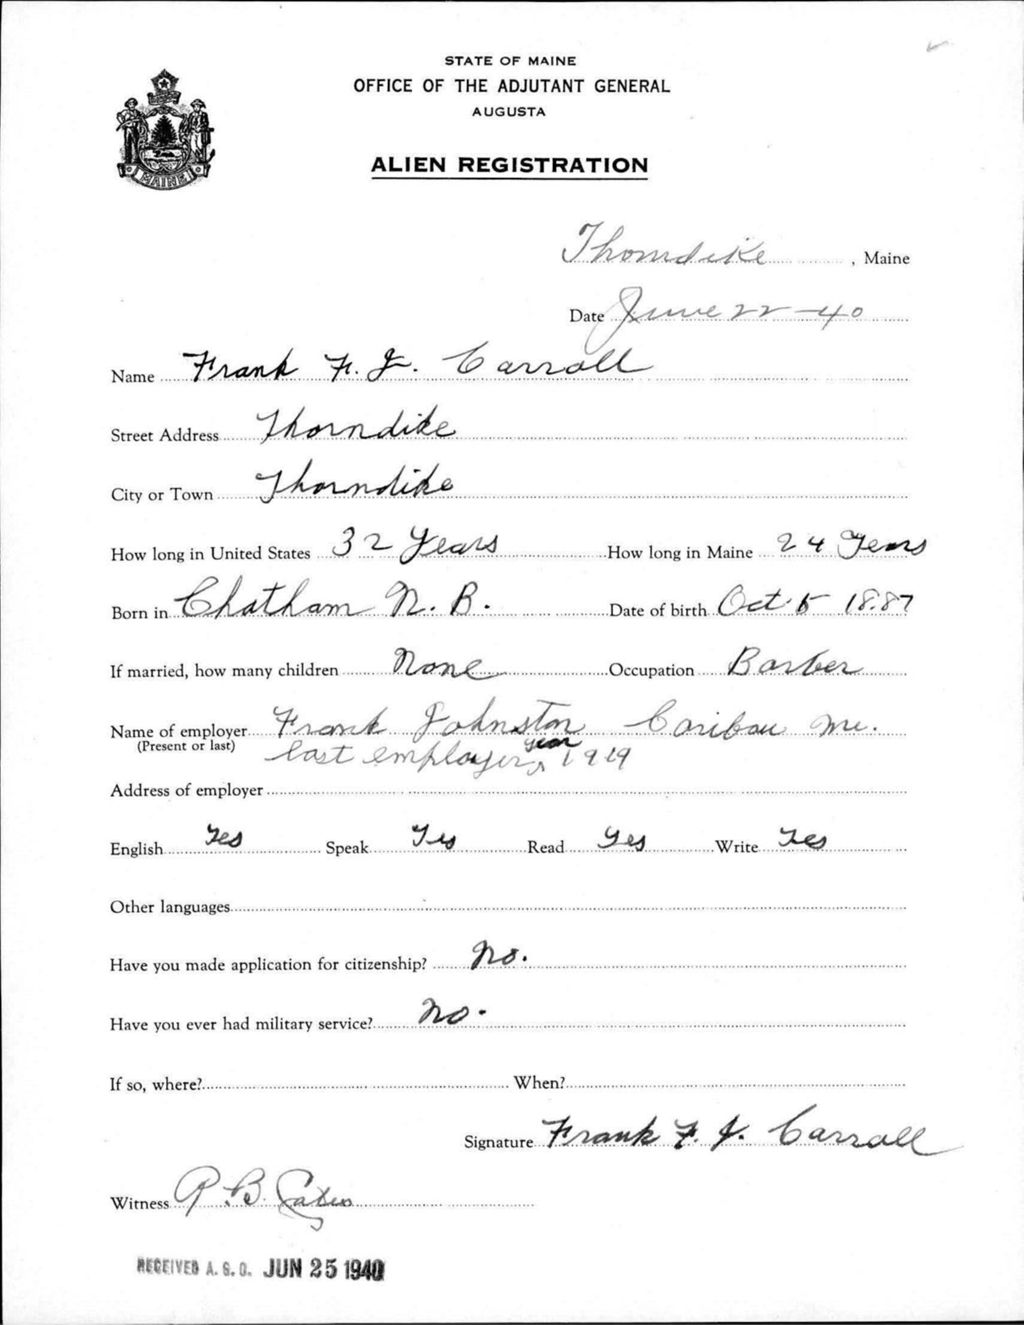 STATE OF MAINE
OFFICE OF THE ADJUTANT GENERAL
AUGUSTA
ALIEN REGISTRATION
MAINE
Thorndike, Maine
Date June 22-40
Name Frank F. J. Carroll
Street Address Thorndike
City or Town Thorndike
How long in United States 32 Years How long in Maine 24 Years
Born in Chatham N. B. Date of birth Oct 5 1887
If married, how many children None Occupation Barber
Name of employer Frank Johnston Caribou Me.
(Present or last) last employer year 1929
Address of employer
English Yes Speak Yes Read Yes Write Yes
Other languages
Have you made application for citizenship? No.
Have you ever had military service? No.
If so, where? When?
Signature Frank F. J. Carroll
Witness R. B. Cates
RECEIVED A. G. O. JUN 25 1940